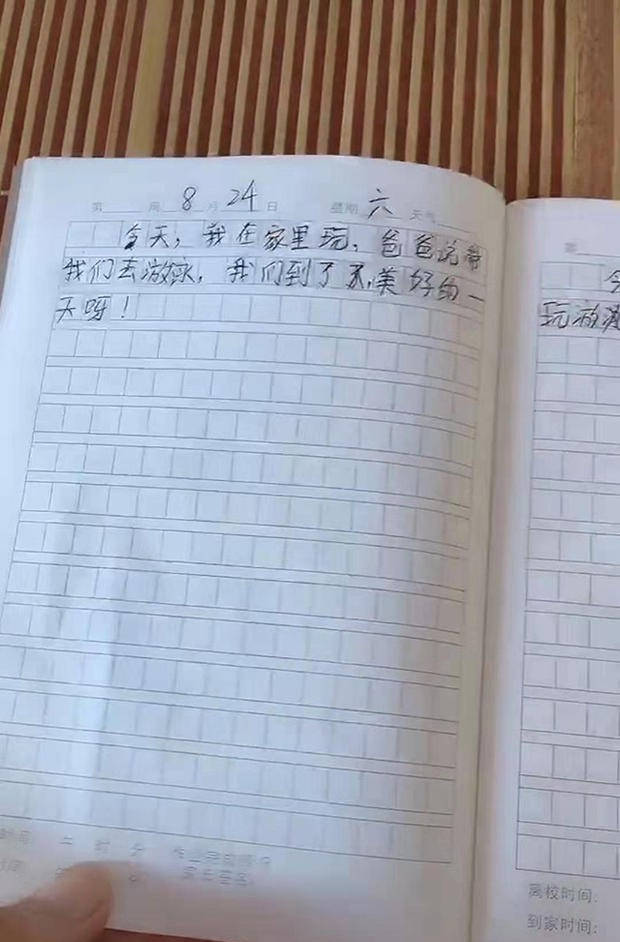 第 周 8 月 24 日 星期 六 天气
今天，我在家里玩，爸爸说带
我们去激流，我们到了，美好的一
天呀！
第
今
玩激
离校时间：
到家时间：